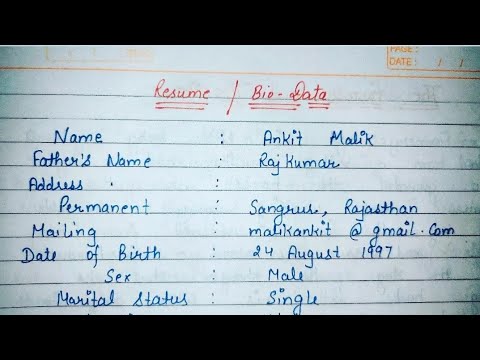 PAGE:
DATE: / /
Resume / Bio-Data
Name : Ankit Malik
Father's Name : Raj Kumar
Address :
Permanent : Sangrus, Rajasthan
Mailing : malikankit @ gmail.com
Date of Birth : 24 August 1997
Sex : Male
Marital Status : Single